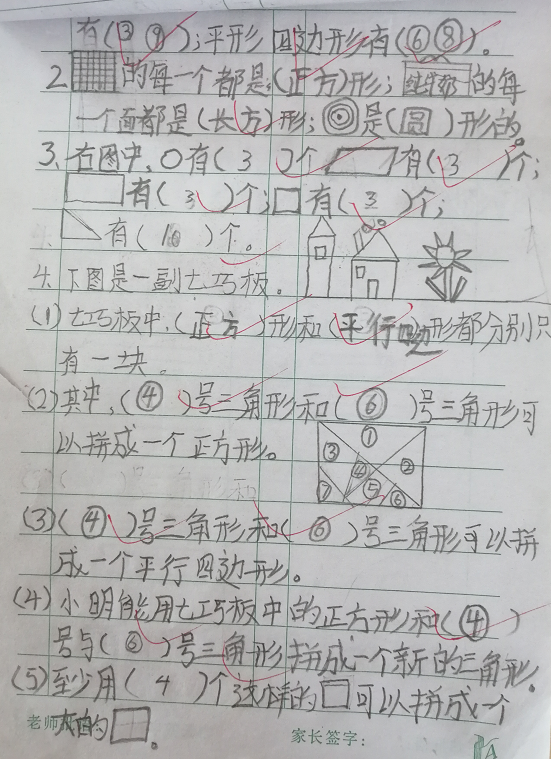 有(③ ⑨);平形四边形有(⑥⑧)。
2. 的每一个都是(正方)形; 的每
一个面都是(长方)形; 是(圆)形的。
3、右图中,○有(3)个 有(3)个;
有(3)个; □有(3)个;
有(10)个。
4. 下图是一副七巧板。
(1)七巧板中,(正方)形和(平行四边)形都分别只
有一块。
(2)其中,(④)号三角形和(⑥)号三角形可
以拼成一个正方形。
① ② ③ ④ ⑤ ⑥ ⑦
(3)(④)号三角形和(⑥)号三角形可以拼
成一个平行四边形。
(4)小明能用七巧板中的正方形和(④)
号与(⑥)号三角形拼成一个新的三角形。
(5)至少用(4)个这样的□可以拼成一个
大的□。
老师
家长签字: